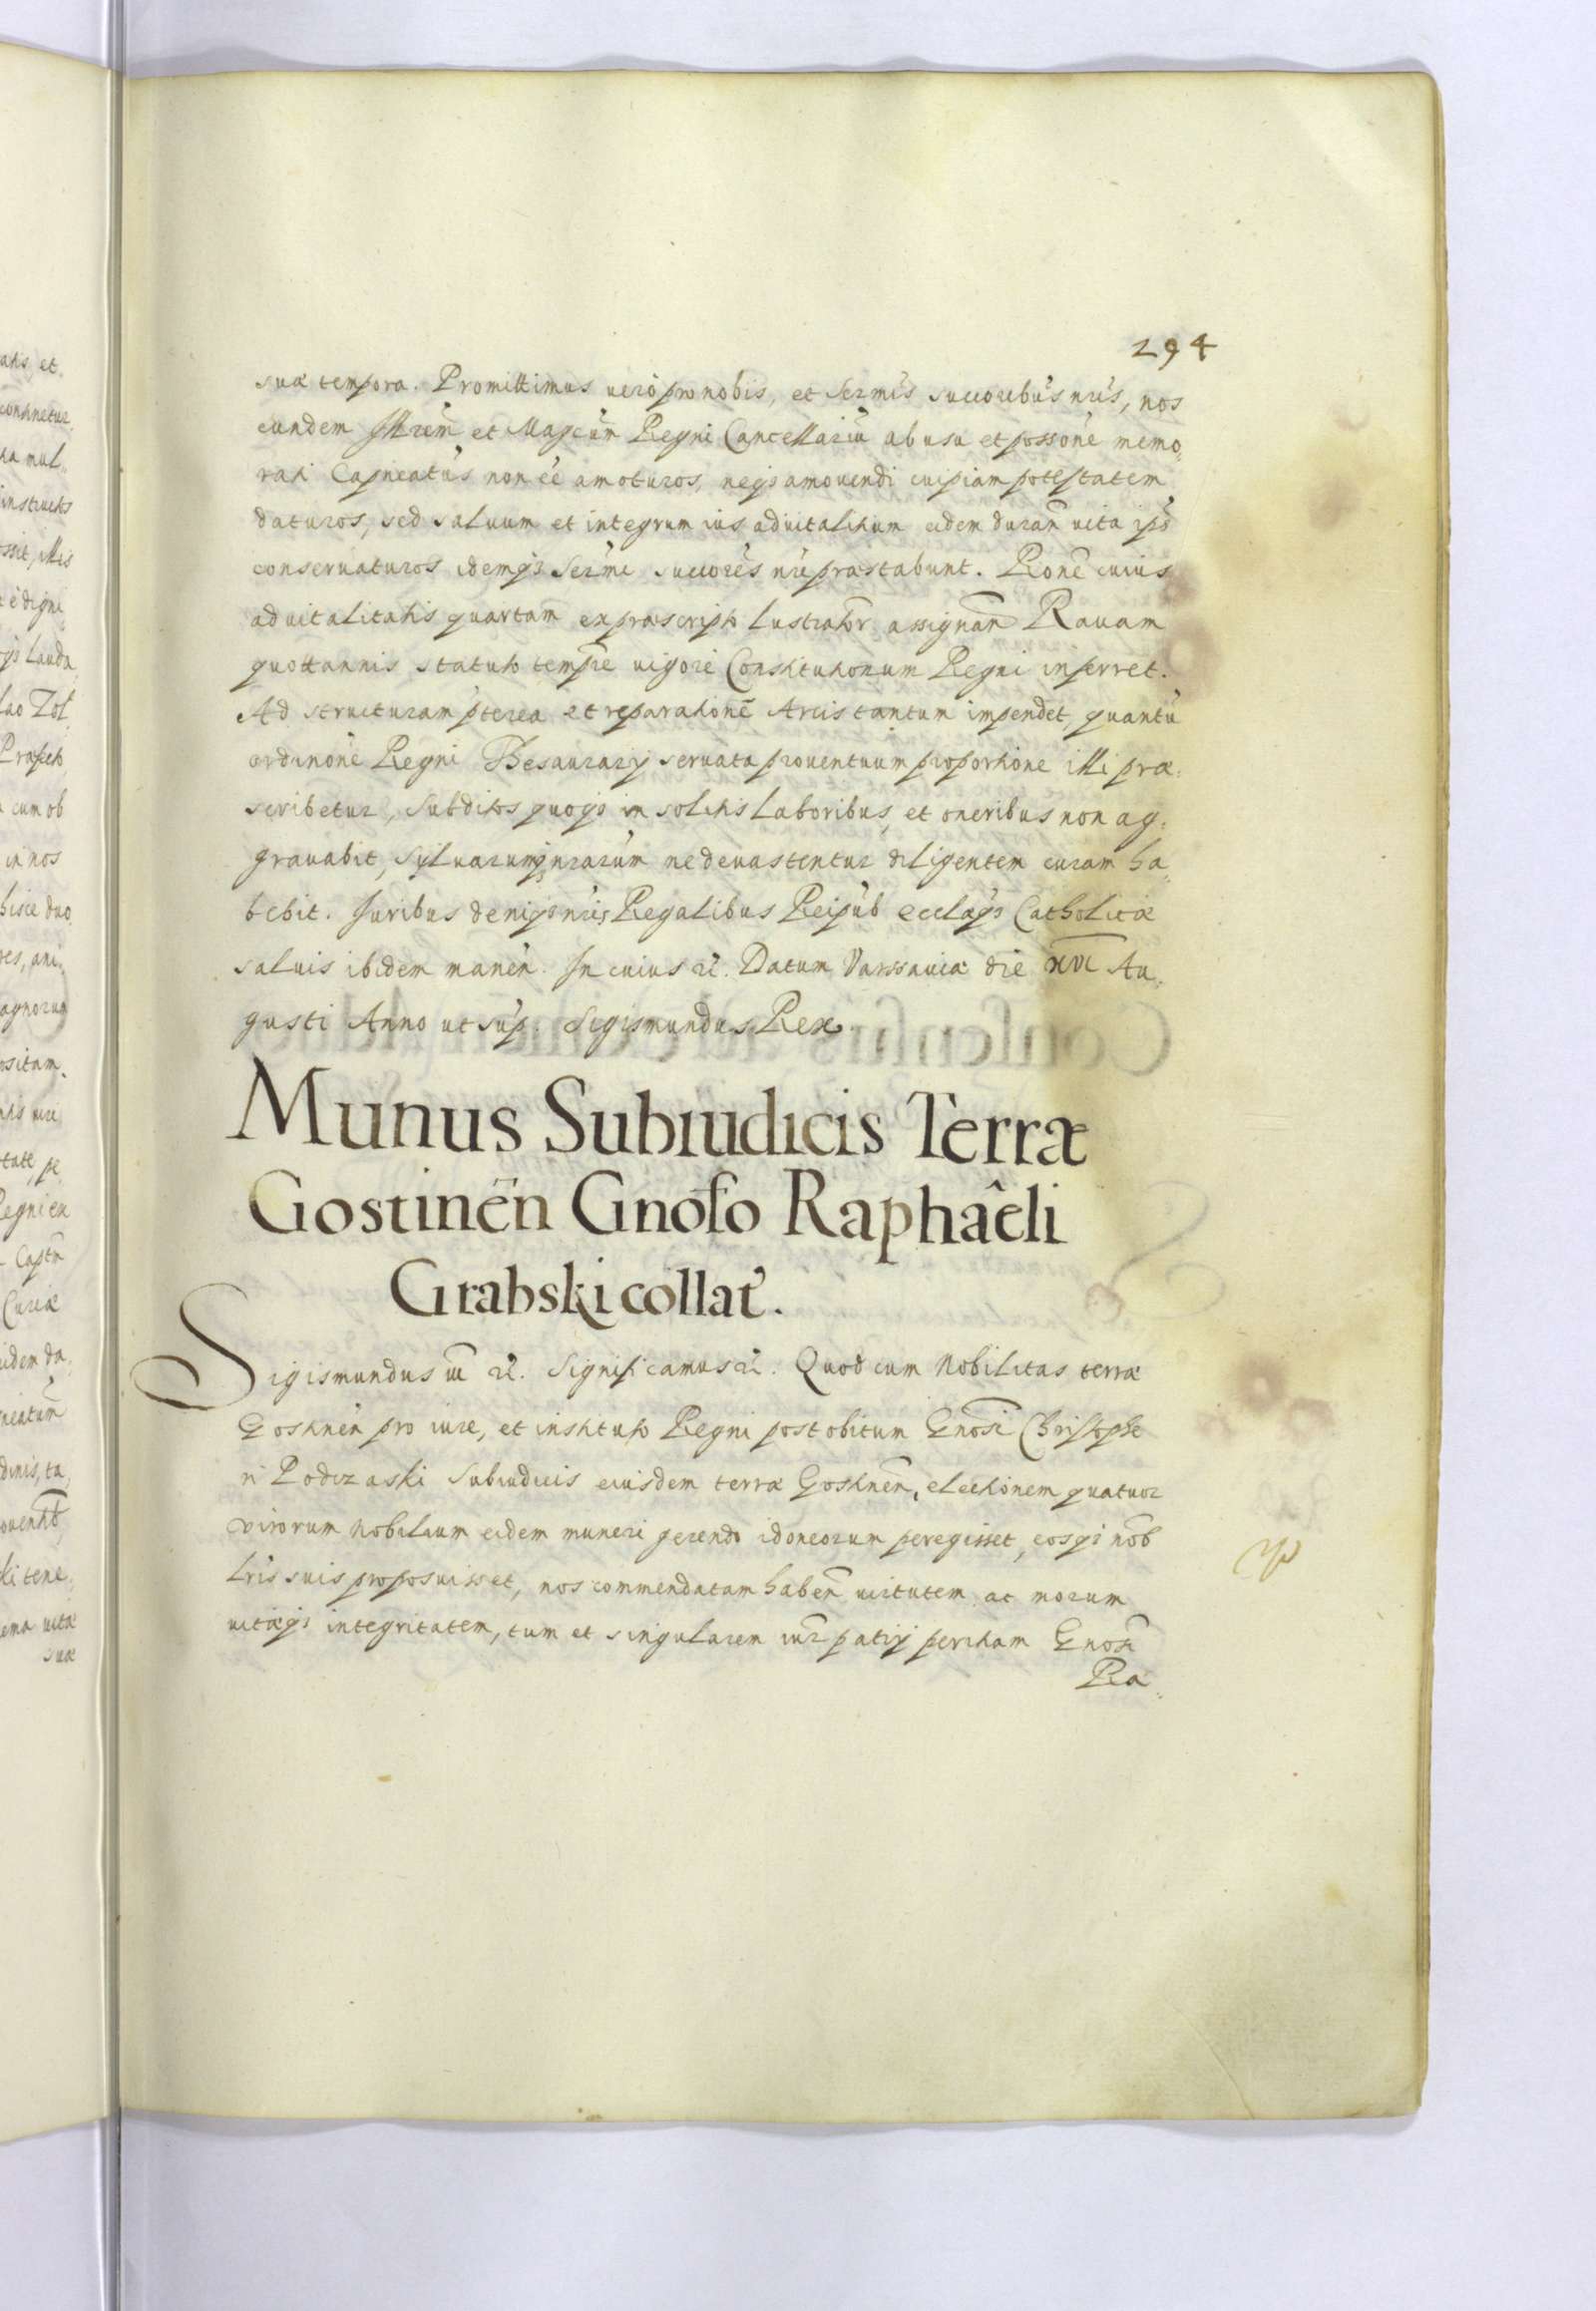 294
suæ tempora. Promittimus uerò pro nobis, et Sermis succoribus nris, nos
eundem Illrem et Magcum Regni Cancellariũ ab usu et possone memo,
rati Capneatus non eẽ amoturos, neqs amouendi cuipiam potestatem
daturos, sed saluum et integrum ius aduitalitium eidem durañ uita ips
conseruaturos idemqs Sermi succores nri præstabunt. Rone cuius
aduitalitatis quartam ex præscripto Lustrator assignañ Rauam
quottannis statuto tempre uigore Constitutionum Regni inferret.
Ad structuram pterea et reparationẽ Arcis tantum impendet, quantũ
ordinone Regni Thesaurarij seruata prouentuum proportione illi præ,
scribetur, Subditos quoqs in solitis Laboribus, et oneribus non ag,
grauabit, syluarumqs nrarum ne deuastentur diligentem curam ha,
bebit. Juribus deniqs nris Regalibus Reipub ecclæqs Catholicæ
saluis ibidem maneñ. In cuius rẽ. Datum Varssauiæ die XVI Au,
gusti Anno ut sup. Sigismundus Rex.
Munus Subiudicis Terræ
Gostineñ Gnoso Raphaêli
Grabski collat.
Sigismundus III rẽ. Significamus rẽ. Quod cum Nobilitas terræ
Gostineñ pro iure, et instituto Regni post obitum Gnosi Christophe
ri Podczaski Subiudicis eiusdem terræ Gostineñ, electionem quatuor
virorum Nobilium eidem muneri gerendo idoneorum peregisset, eosqs nob
Lris suis proposuisset, nos commendatam habeñ uirtutem ac morum
uitæqs integritatem, tum et singularem iur patrij peritiam Gnosi
Ra,